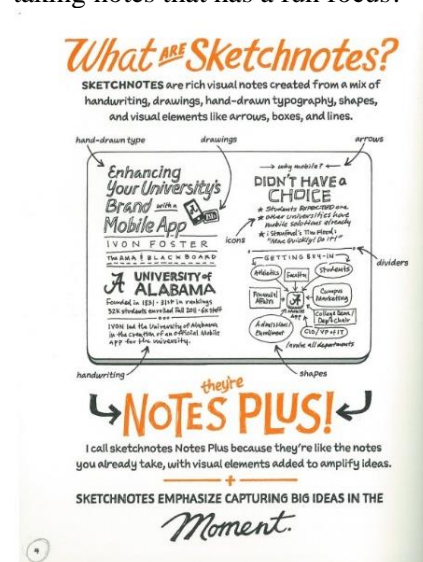 taking notes that has a fun focus?
What ARE Sketchnotes?
SKETCHNOTES are rich visual notes created from a mix of
handwriting, drawings, hand-drawn typography, shapes,
and visual elements like arrows, boxes, and lines.
hand-drawn type
drawings
arrows
Enhancing
Your University's
Brand with a
Mobile App
IVON FOSTER
THE UNIVERSITY of
ALABAMA
IVON led the University of Alabama
in the creation of an official Mobile
APP for the university.
icons
why mobile?
DIDN'T HAVE a
CHOICE
Students EXPECTED one
other universities have
mobile solutions already
"Move Quickly! Do it!"
dividers
GETTING BUY-IN
Athletics
Faculty
Students
Financial
Affairs
Campus
Marketing
College Dean/
Dept Chair
Admissions/
Enrollment
CIO/VP of IT
involve all departments
handwriting
shapes
they're
NOTES PLUS!
I call sketchnotes Notes Plus because they're like the notes
you already take, with visual elements added to amplify ideas.
SKETCHNOTES EMPHASIZE CAPTURING BIG IDEAS IN THE
Moment.